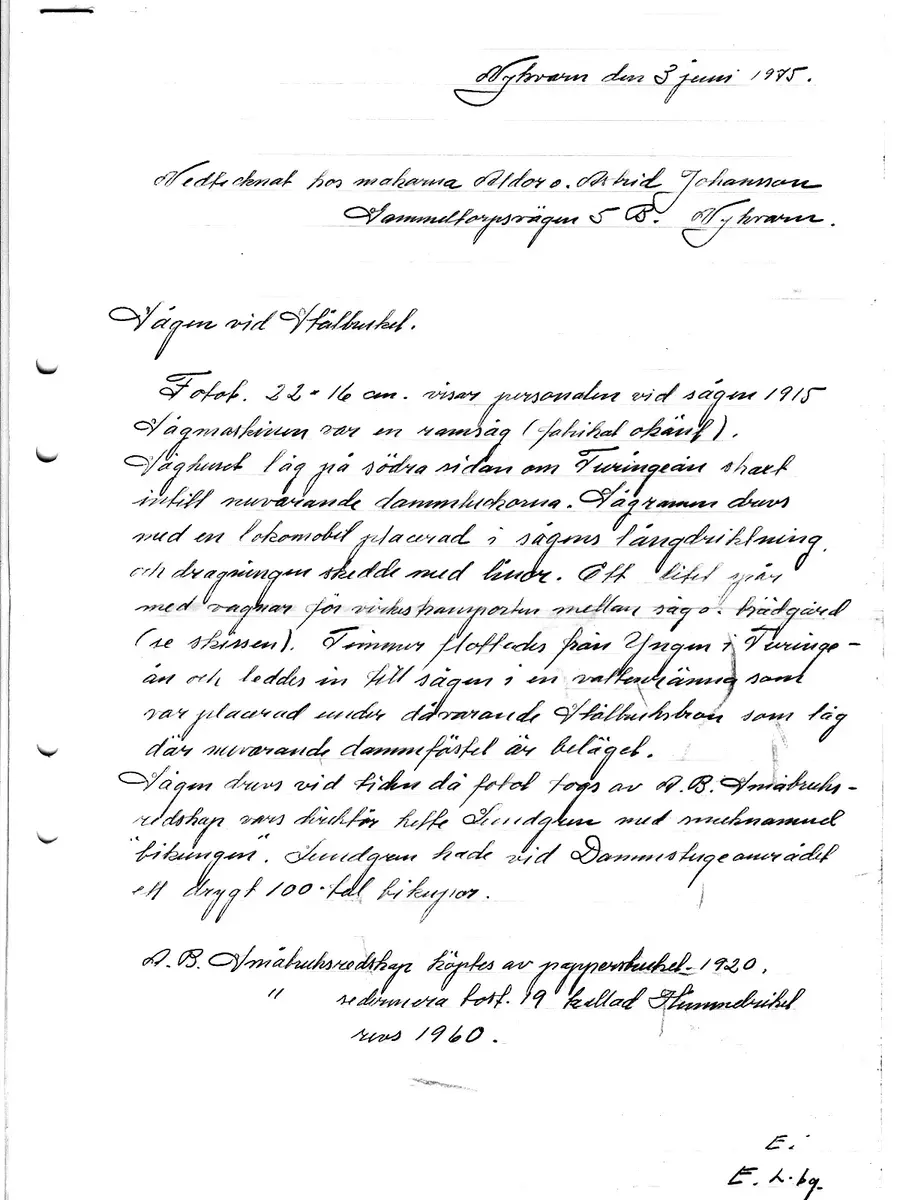 Nykvarn den 3 juni 1975.
Nedtecknat hos makarna Aldor o. Astrid Johansson
Gammeltorpsvägen 5 B. Nykvarn.
Sågen vid Stålbruket.
Fotot. 22 x 16 cm. visar personalen vid sågen 1915
Sågmaskinen var en ramsåg (fabrikat okänt).
Såghuset låg på södra sidan om Turingeån strax
intill nuvarande dammluckorna. Sågramen drevs
med en lokomobil placerad i sågens långdriktning,
och dragningen skedde med linor. Ett litet spår
med vagnar för virkestransporten mellan såg o. brädgård
(se skissen). Timmer flottades från Yngen i Turinge-
ån och leddes in till sågen i en vattenränna som
var placerad under dåvarande Stålbruksbron som låg
där nuvarande dammfäste är beläget.
Sågen drevs vid tiden då fotot togs av A.B. Småbruks-
redskap vars direktör hette Lundgren med smeknamnet
"bikungen". Lundgren hade vid Dammstugeområdet
ett drygt 100-tal bikupor.
A.B. Småbruksredskap köptes av pappersbruket 1920.
" sedermera bost. 19 kallad
revs 1960.
E.
E. L-bg.